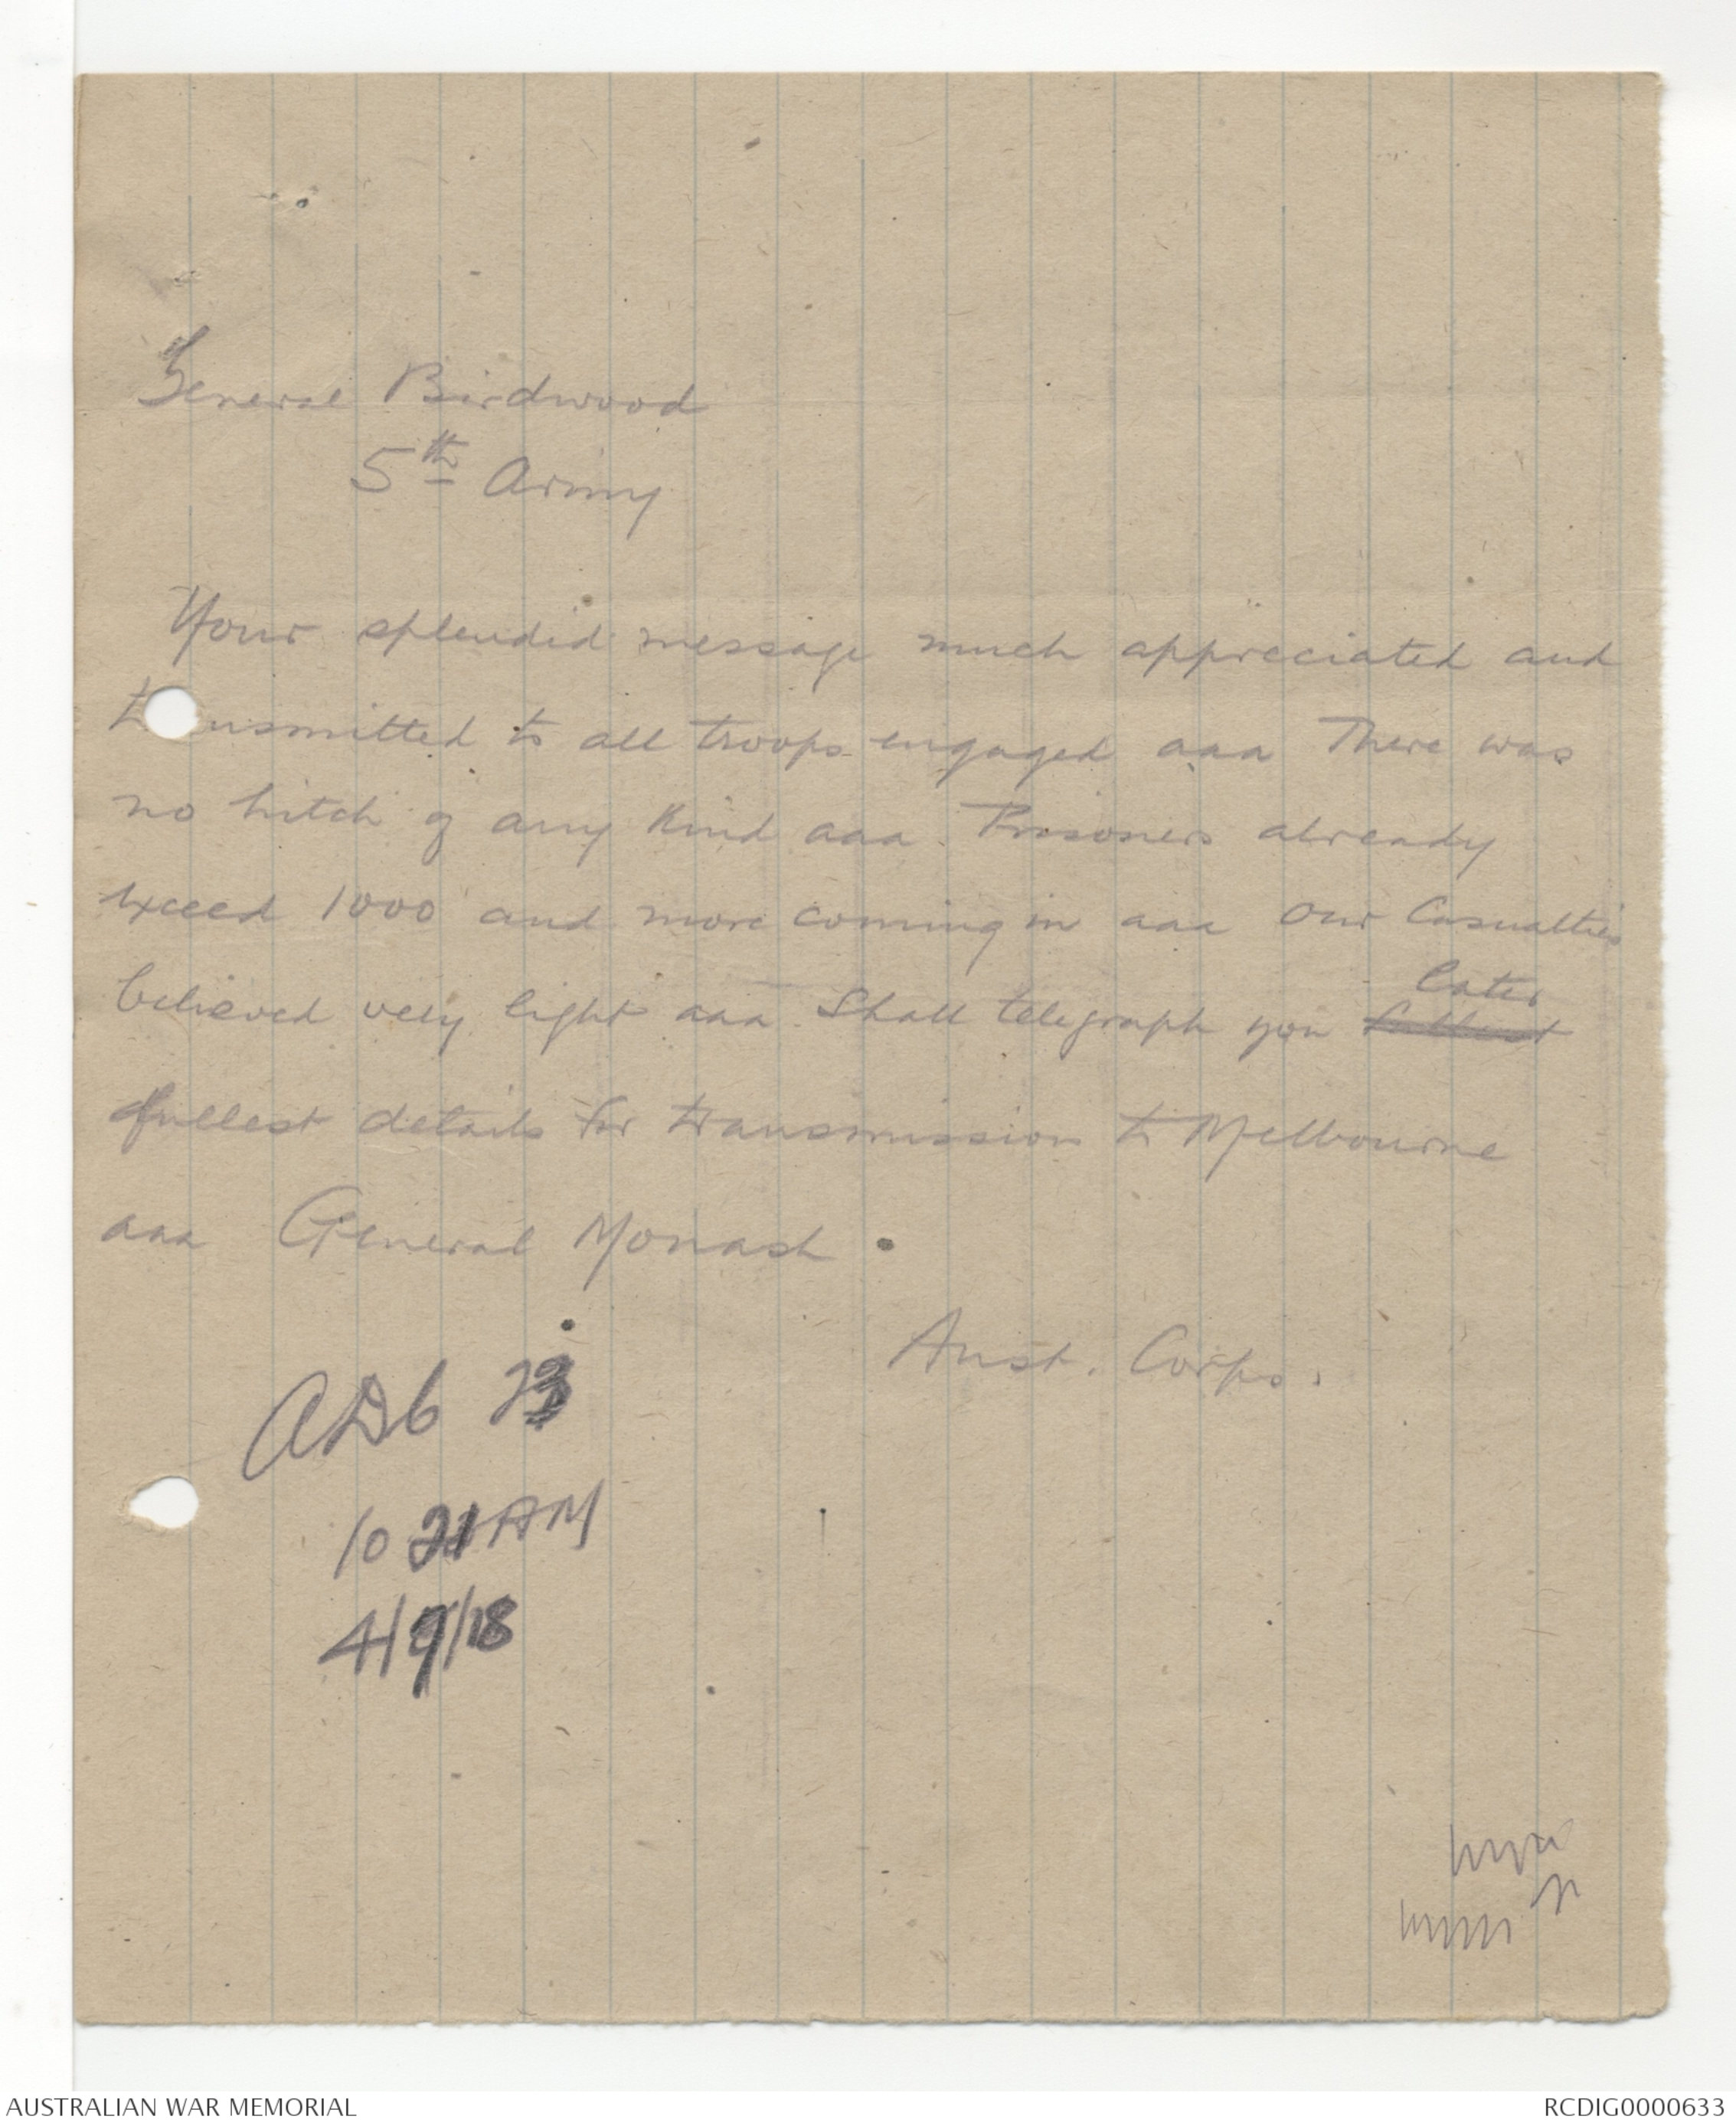 General Birdwood
5th Army
Your splendid message much appreciated and
transmitted to all troops engaged aaa There was
no hitch of any kind aaa Prisoners already
exceed 1000 and more coming in aaa Our Casualties
believed very light aaa Shall telegraph you later
fullest details for transmission to Melbourne
aaa General Monash
Aust. Corps.
10 21 AM
AUSTRALIAN WAR MEMORIAL
RCDIG0000633